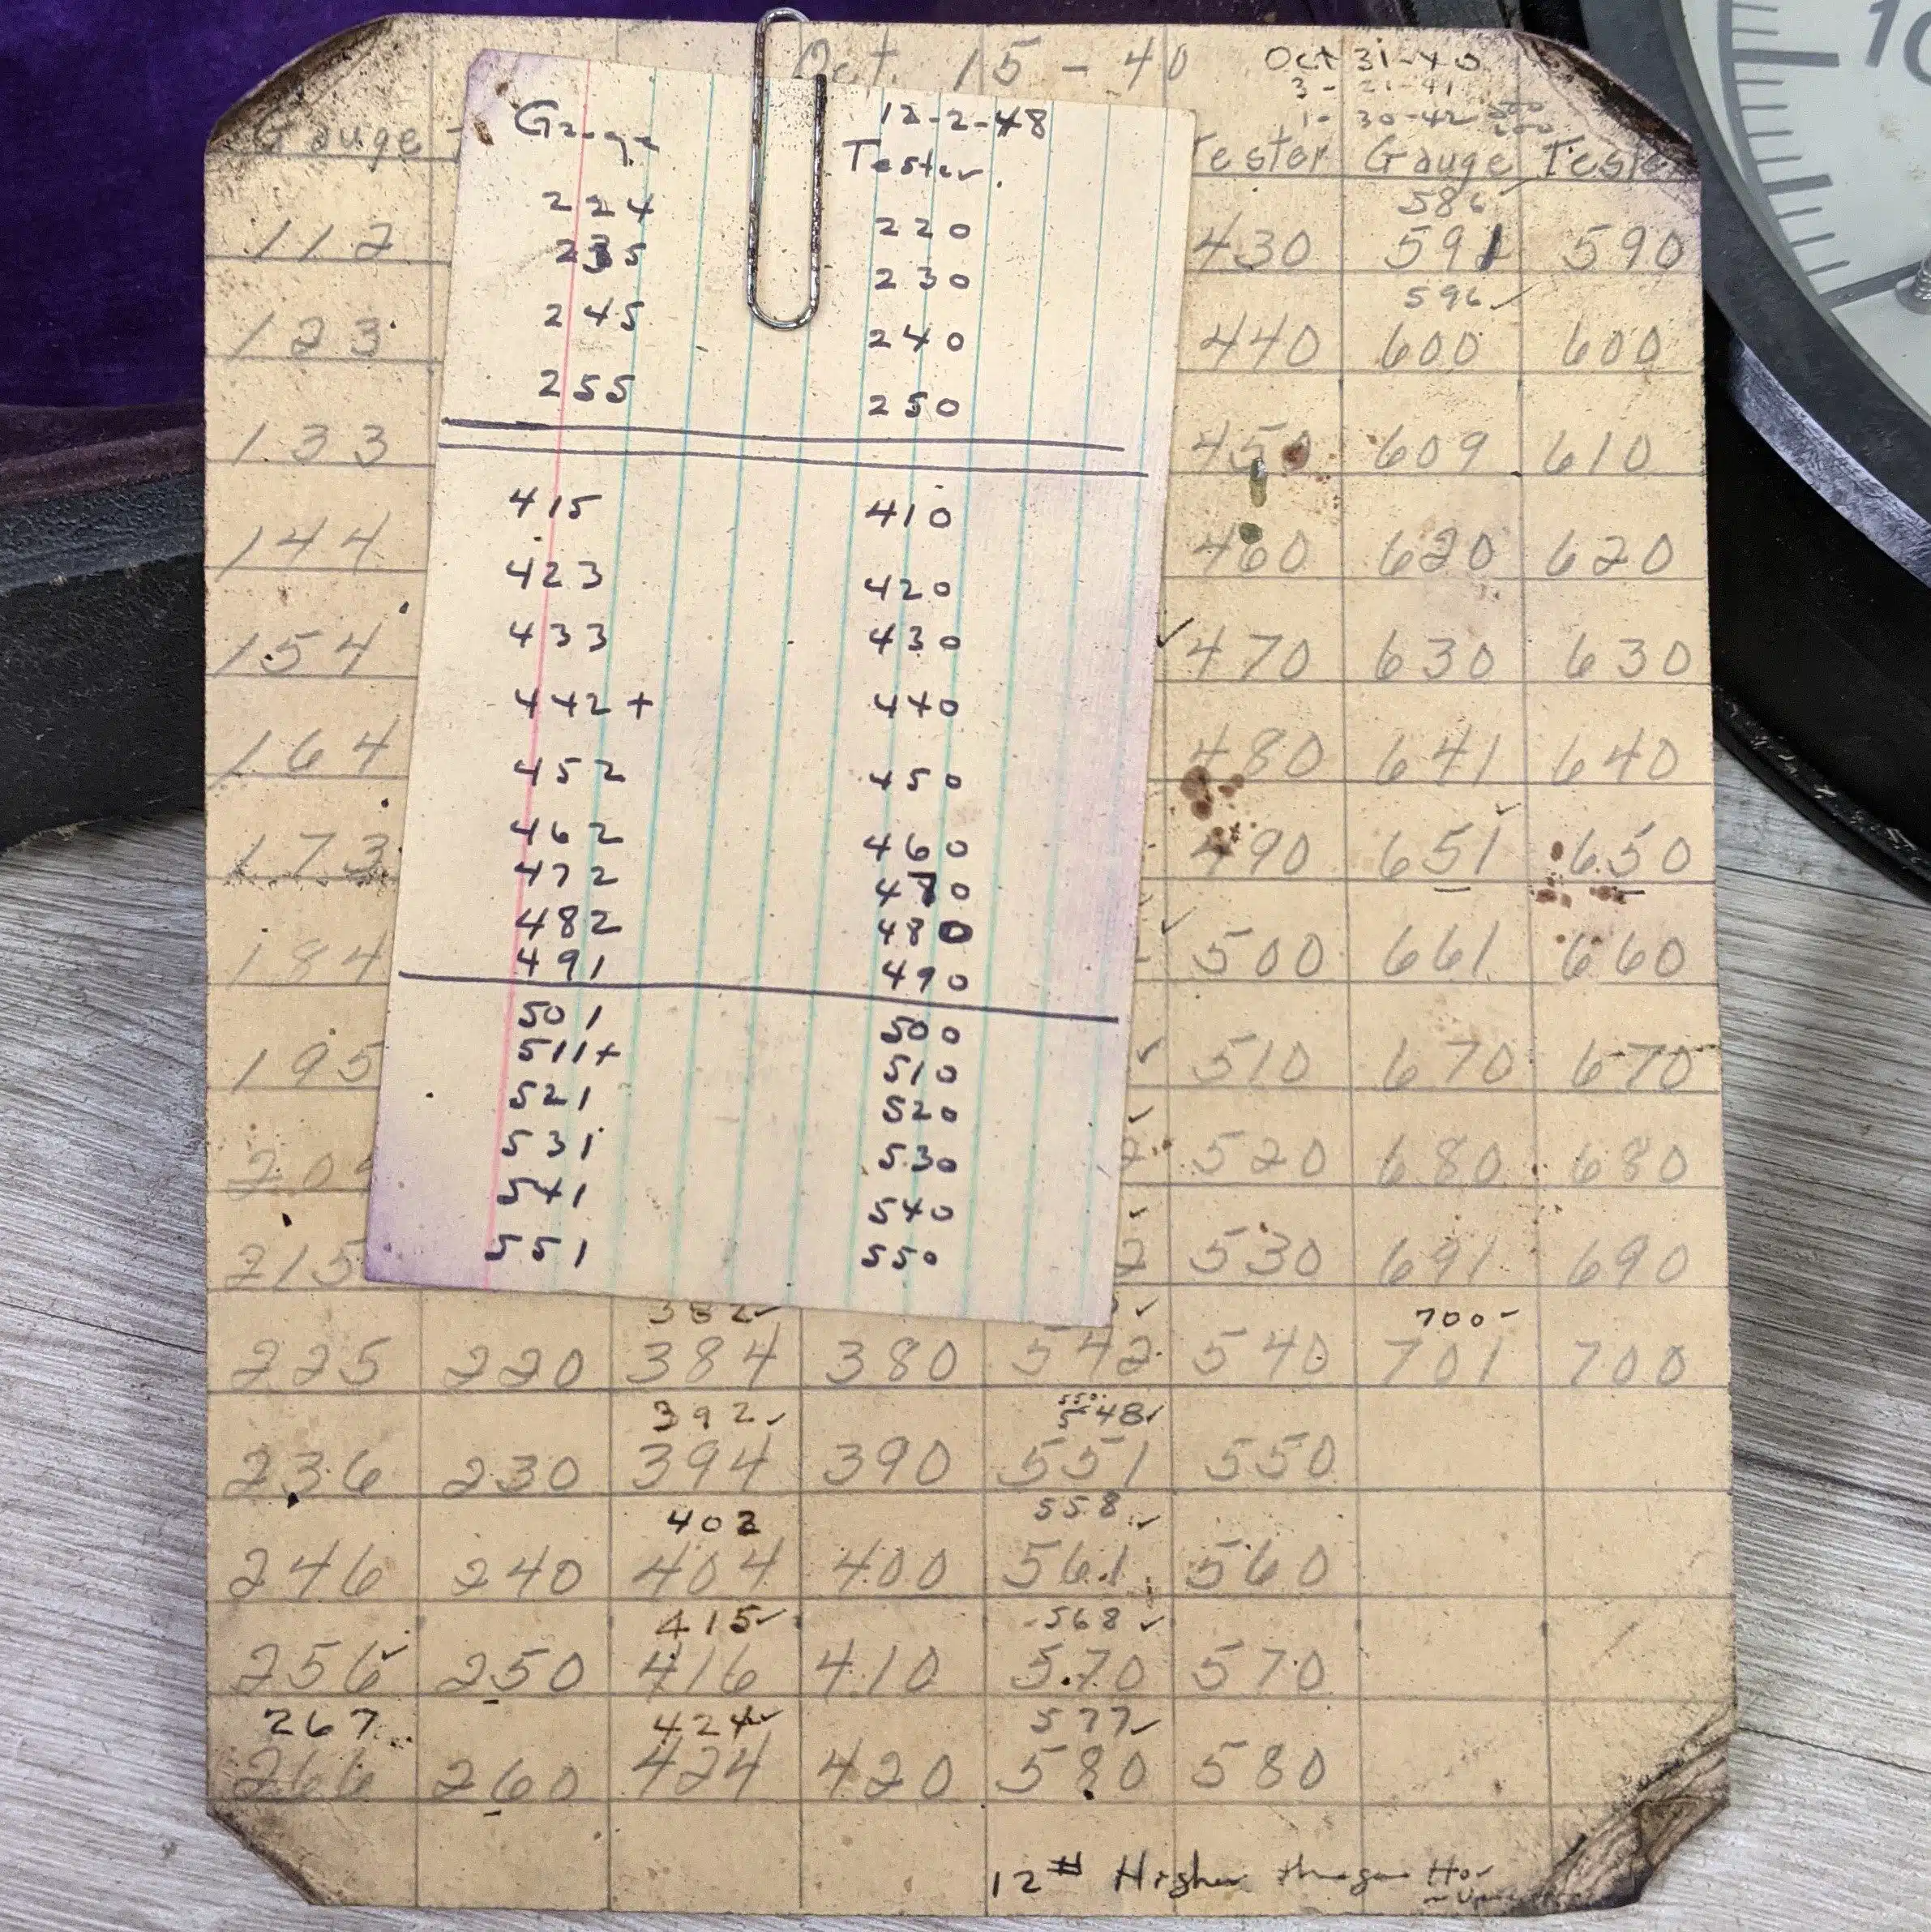 Oct. 15 - 40
Oct 31-40
3 - 21-41
1 - 30-42
Gauge
Tester Gauge Tester
586
112 430 591 590
596
123 440 600 600
133 450 609 610
144 460 620 620
154 ✓ 470 630 630
164 480 641 640
173 490 651 650
184 500 661 660
195 510 670 670
204 520 680 680
215 530 691 690
382 ✓ 700 -
225 220 384 380 542 540 701 700
392 ✓ 548 ✓
236 230 394 390 551 550
402 558 ✓
246 240 404 400 561 560
415 ✓ 568 ✓
256 ✓ 250 416 410 570 570
267 424 ✓ 577 ✓
266 260 424 420 580 580
12 # Higher
12-2-48
Gauge Tester.
224 220
235 230
245 240
255 250
415 410
423 420
433 430
442+ 440
452 450
462 460
472 470
482 480
491 490
501 500
511+ 510
521 520
531 530
541 540
551 550
10